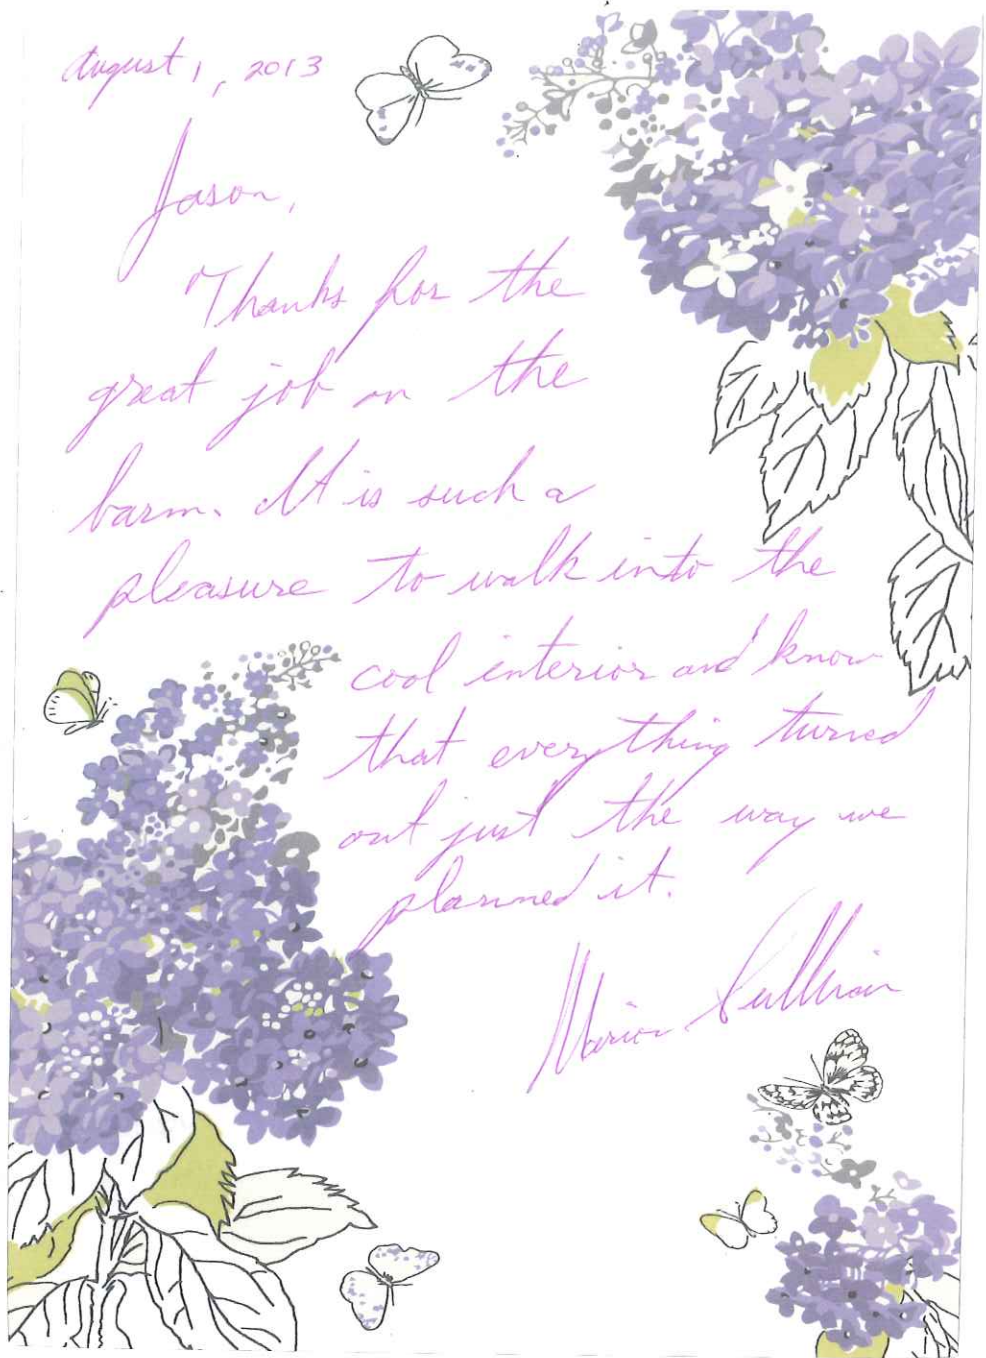 August 1, 2013
Jason,
Thanks for the
great job on the
barn. It is such a
pleasure to walk into the
cool interior and know
that everything turned
out just the way we
planned it.
Marion Sullivan